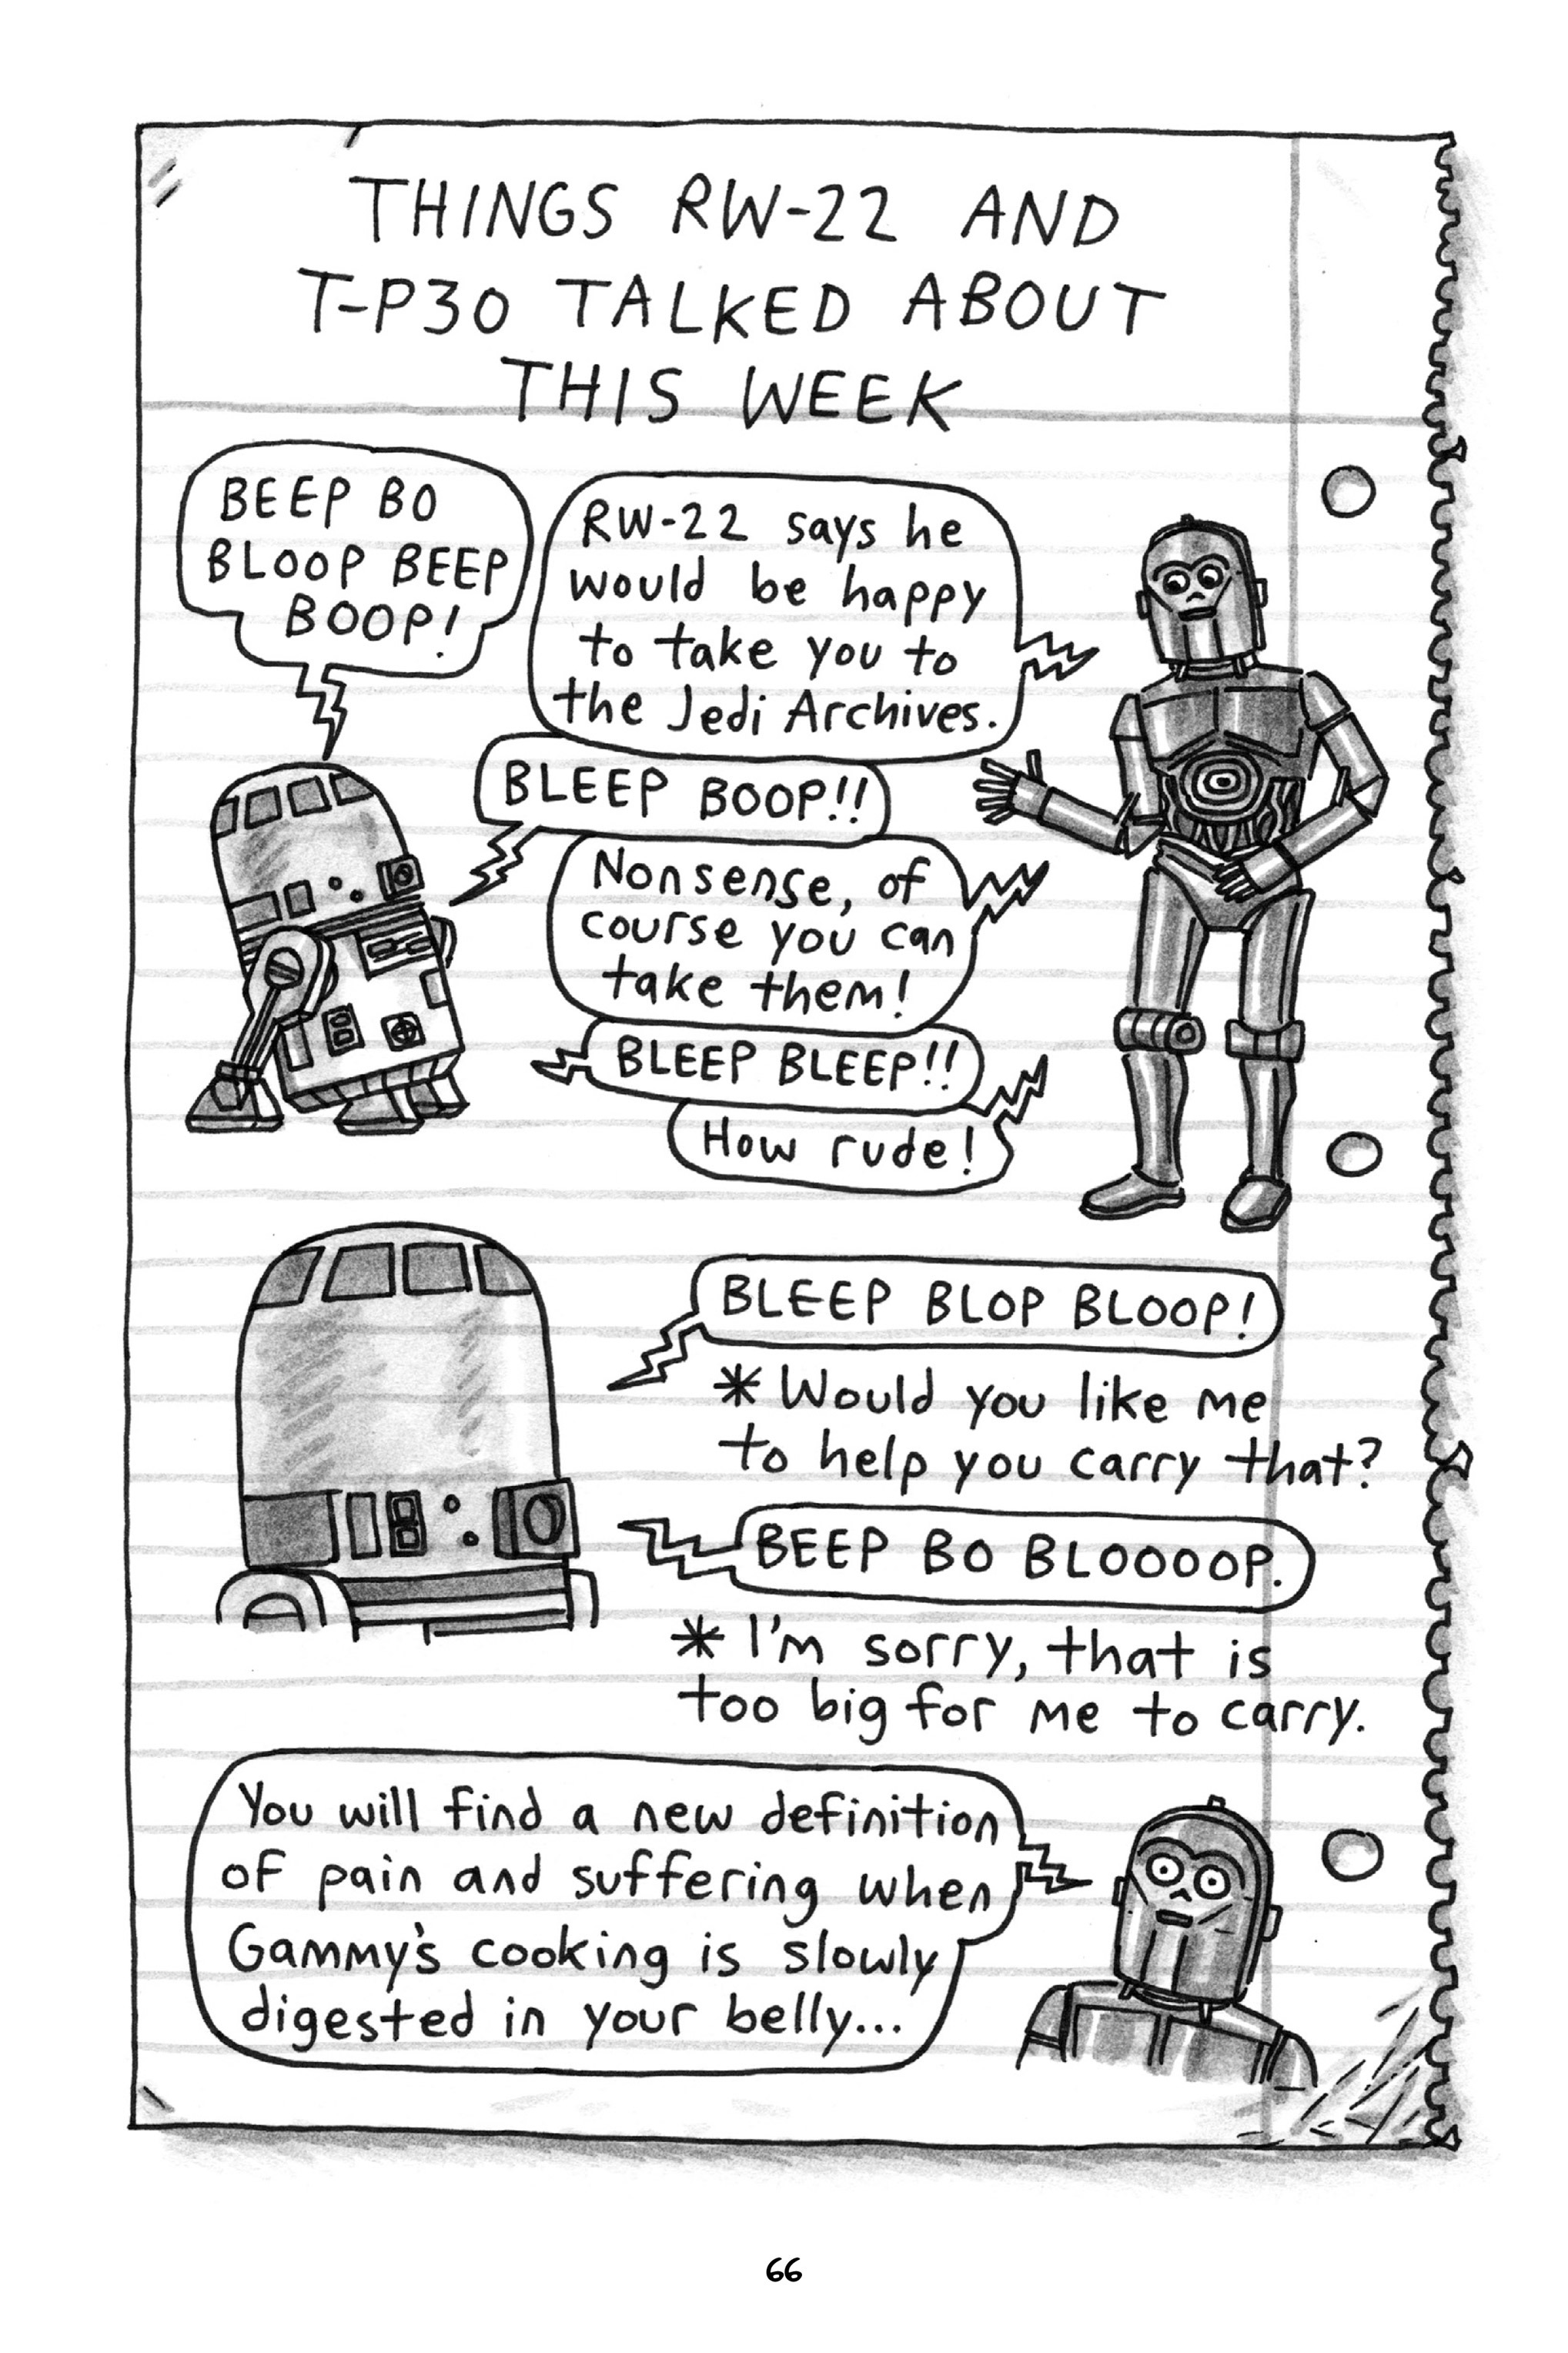 THINGS RW-22 AND
T-P30 TALKED ABOUT
THIS WEEK
BEEP BO
BLOOP BEEP
BOOP!
RW-22 says he
would be happy
to take you to
the Jedi Archives.
BLEEP BOOP!!
Nonsense, of
course you can
take them!
BLEEP BLEEP!!
How rude!
BLEEP BLOP BLOOP!
* Would you like me
to help you carry that?
BEEP BO BLOOOOP.
* I'm sorry, that is
too big for me to carry.
You will find a new definition
of pain and suffering when
Gammy's cooking is slowly
digested in your belly...
66